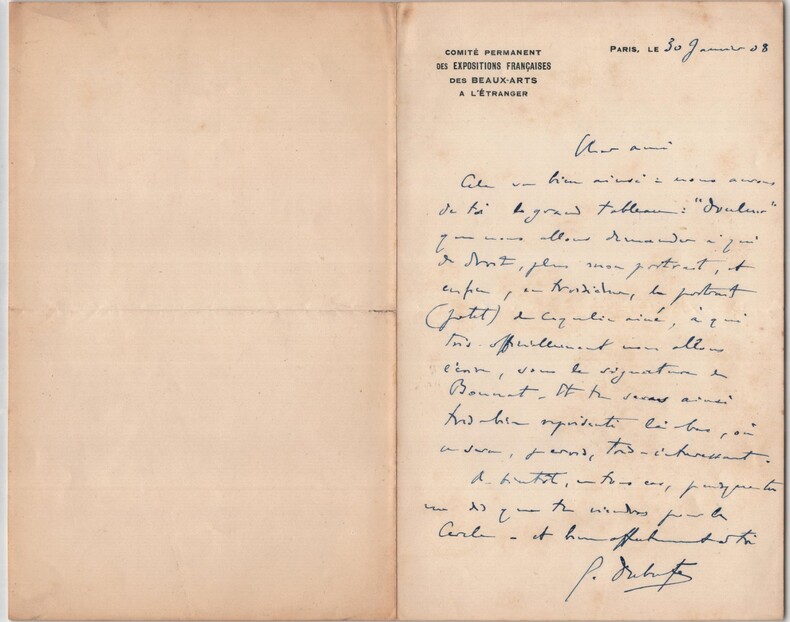 COMITÉ PERMANENT
DES EXPOSITIONS FRANÇAISES
DES BEAUX-ARTS
A L'ÉTRANGER
PARIS, LE 30 Janvier 08
Cher ami
Cela va bien ainsi : nous aurons
de toi le grand tableau : "Douleur"
que nous allons demander à qui
de droit, plus mon portrait, et
enfin, en troisième, le portrait
(petit) de Coquelin ainé, à qui
très officiellement nous allons
écrire, sous la signature de
Bonnat. Et tu seras ainsi
très bien représenté là bas, où
ce sera, je crois, très intéressant.
A bientôt, en tous cas, puisque tu
me dis que tu viendras pour le
Cercle - et bien affectueusement à toi
G. Dubufe